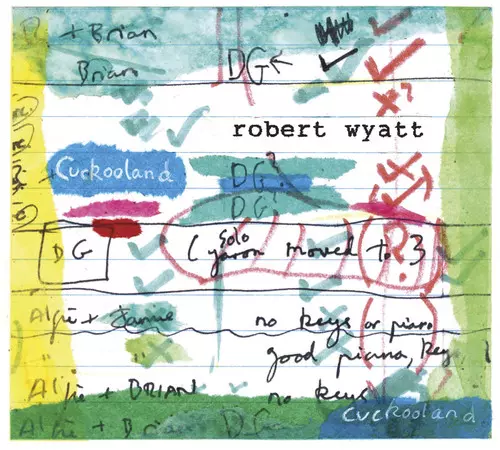 + Brian
Brian DG ←
x?
robert wyatt
Cuckooland
DG?
4
DG?
DG (solo yaron moved to 3
?
Alfie + Jamie no keys or piano
" " good piano, key
Alfie + BRIAN no keys
Cuckooland
Alfie + Bria DG